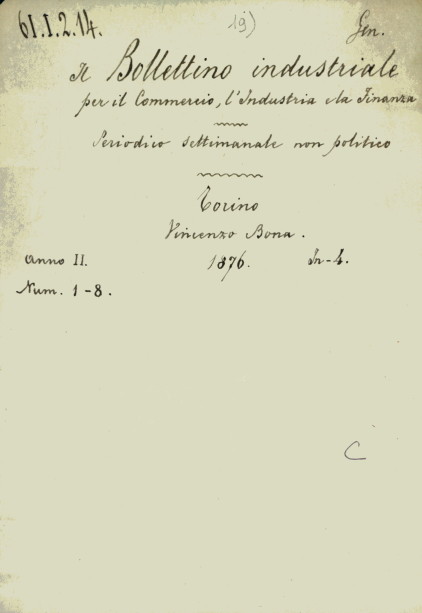 61.I.2.14.
19)
Gen.
Il Bollettino industriale
per il Commercio, l'Industria e la Finanza
Periodico settimanale non politico
Torino
Vincenzo Bona.
Anno II. 1876. In-4.
Num. 1-8.
C